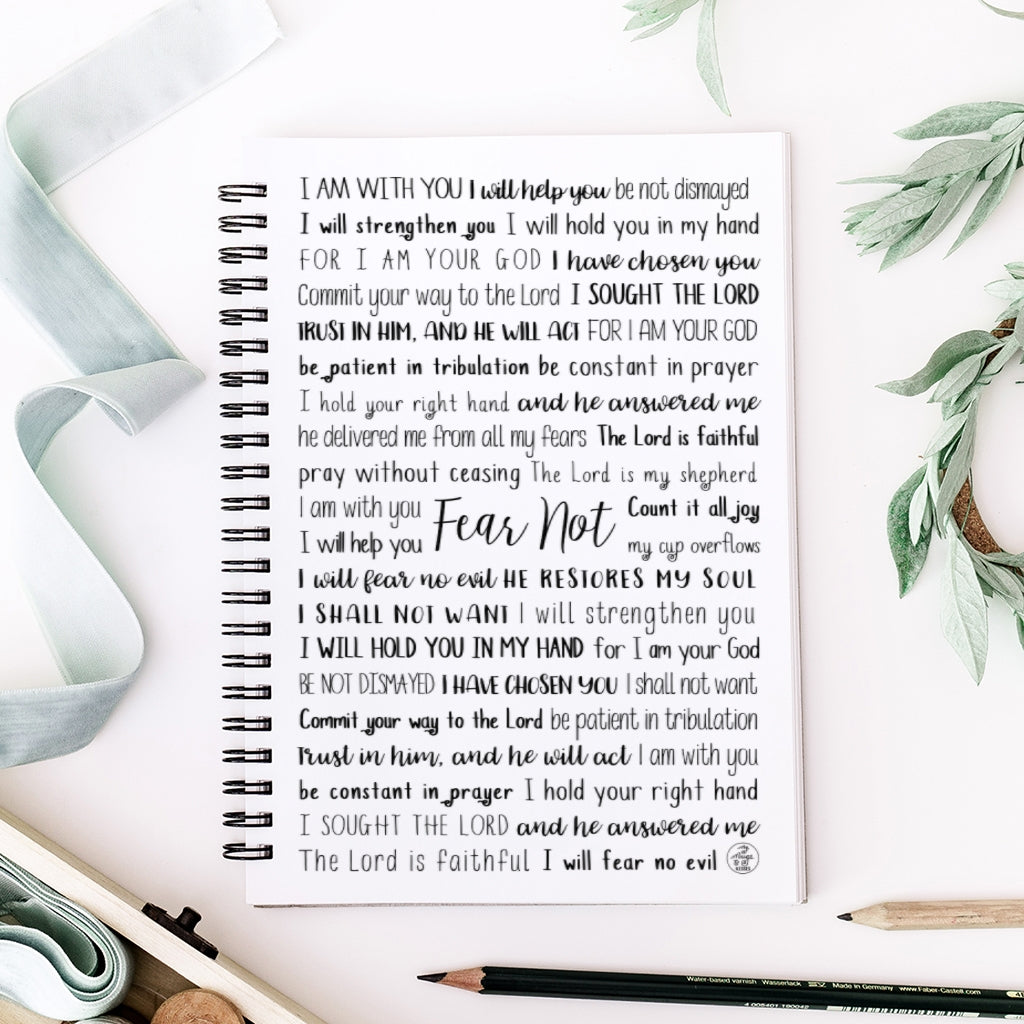 I AM WITH YOU I will help you be not dismayed
I will strengthen you I will hold you in my hand
FOR I AM YOUR GOD I have chosen you
Commit your way to the Lord I SOUGHT THE LORD
TRUST IN HIM, AND HE WILL ACT FOR I AM YOUR GOD
be patient in tribulation be constant in prayer
I hold your right hand and he answered me
he delivered me from all my fears The Lord is faithful
pray without ceasing The Lord is my shepherd
I am with you
I will help you
Fear Not
Count it all joy
my cup overflows
I will fear no evil HE RESTORES MY SOUL
I SHALL NOT WANT I will strengthen you
I WILL HOLD YOU IN MY HAND for I am your God
BE NOT DISMAYED I HAVE CHOSEN YOU I shall not want
Commit your way to the Lord be patient in tribulation
Trust in him, and he will act I am with you
be constant in prayer I hold your right hand
I SOUGHT THE LORD and he answered me
The Lord is faithful I will fear no evil
Water-based varnish Wasserlack Made in Germany www.Faber-Castell.com
4 005401 190042